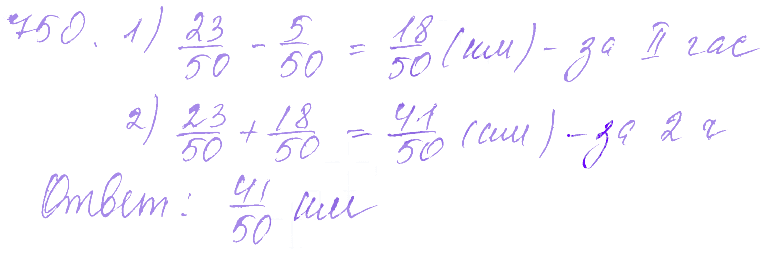 750. 1) 23/50 - 5/50 = 18/50 (км) - за II час
2) 23/50 + 18/50 = 41/50 (км) - за 2 ч
Ответ: 41/50 км